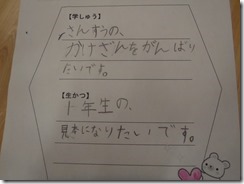 【学しゅう】
さんすうの、
かけざんをがんばり
たいです。
【生かつ】
1年生の、
見本になりたいです。